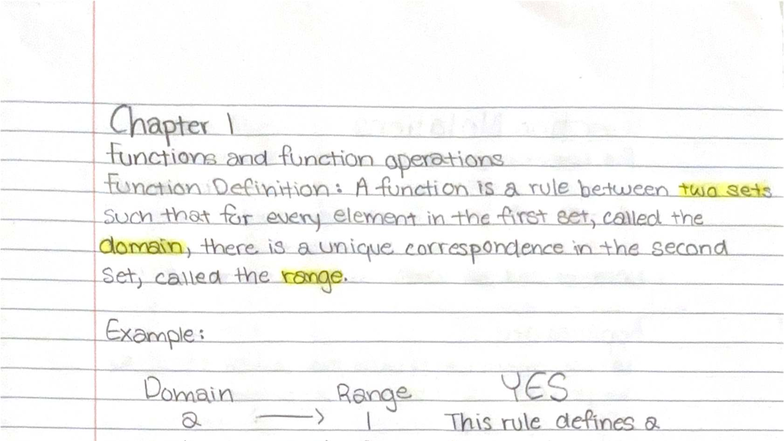 Chapter 1
functions and function operations
Function Definition: A function is a rule between two sets
such that for every element in the first set, called the
domain, there is a unique correspondence in the second
set, called the range.
Example:
Domain Range YES
2 → 1 This rule defines a